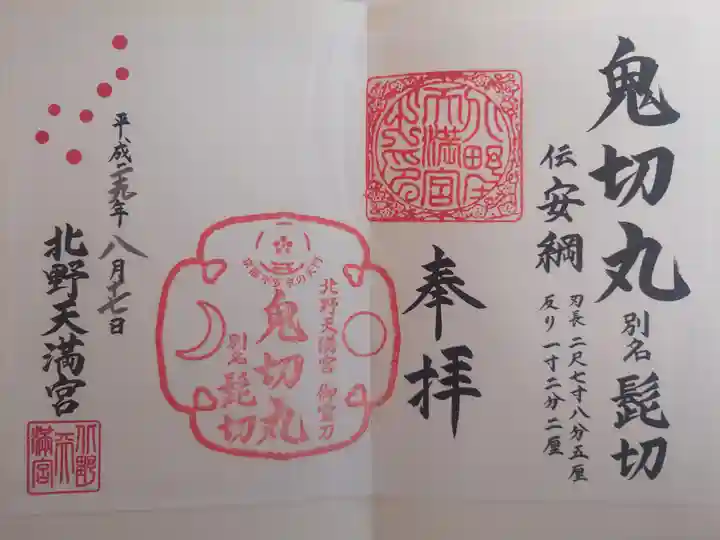 鬼切丸 別名 髭切
伝 安綱
刃長 二尺七寸八分五厘
反り 一寸二分二厘
奉拝
北野天満宮 御霊刀
鬼切丸
別名 髭切
平成二十九年 八月十七日
北野天満宮
北野天満宮